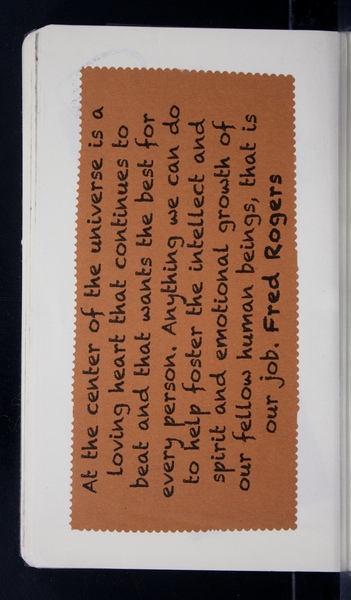 At the center of the universe is a
loving heart that continues to
beat and that wants the best for
every person. Anything we can do
to help foster the intellect and
spirit and emotional growth of
our fellow human beings, that is
our job. Fred Rogers